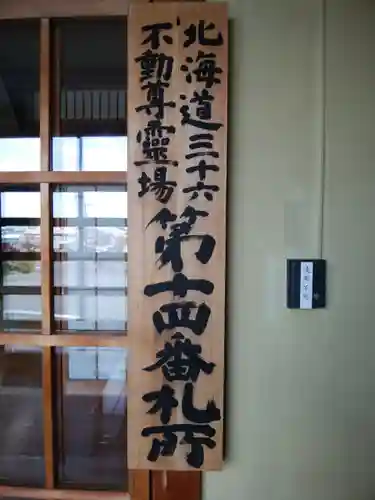 北海道三十六
不動尊霊場
第十四番札所